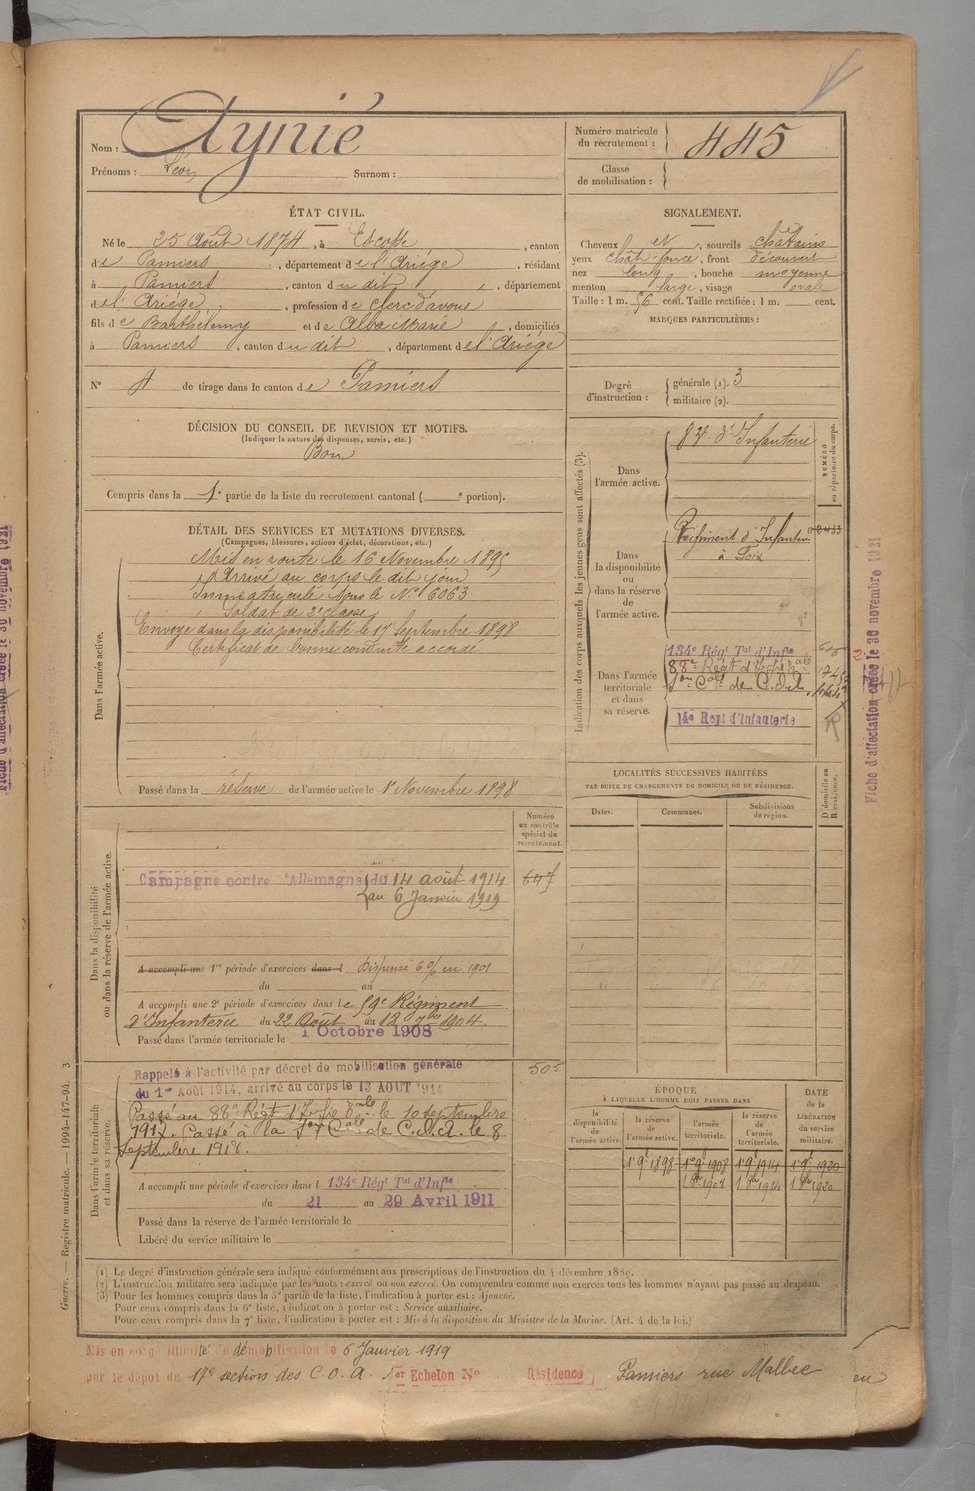 Nom : Aynié
Prénoms : Léon Surnom :
Numéro matricule du recrutement : 445
Classe de mobilisation :
ÉTAT CIVIL.
Né le 25 Août 1874, à Escosse, canton
de Pamiers, département de l'Ariége, résidant
à Pamiers, canton du dit, département
de l'Ariége, profession de clerc d'avoué
fils de Barthélemy et de Alba Marie, domiciliés
à Pamiers, canton du dit, département de l'Ariége
N° 4 de tirage dans le canton de Pamiers
DÉCISION DU CONSEIL DE REVISION ET MOTIFS.
(Indiquer la nature des dispenses, sursis, etc.)
Bon
Compris dans la 1e partie de la liste du recrutement cantonal ( e portion).
DÉTAIL DES SERVICES ET MUTATIONS DIVERSES.
(Campagnes, blessures, actions d'éclat, décorations, etc.)
Dans l'armée active.
Mis en route le 16 Novembre 1895
Arrivé au corps le dit jour
Immatriculé sous le N° 6063
Soldat de 2e classe
Envoyé dans la disponibilité le 17 Septembre 1898
Certificat de bonne conduite accordé
Passé dans la réserve de l'armée active le 1er Novembre 1898
SIGNALEMENT.
Cheveux et, sourcils châtains
yeux chât-foncé, front découvert
nez long, bouche moyenne
menton large, visage ovale
Taille : 1 m. 56 cent. Taille rectifiée : 1 m. cent.
MARQUES PARTICULIÈRES :
Degré d'instruction :
générale (1). 3
militaire (2).
Indication des corps auxquels les jeunes gens sont affectés (3).
NUMÉRO au répertoire du corps.
Dans l'armée active.
d'Infanterie
Dans la disponibilité ou dans la réserve de l'armée active.
Régiment d'Infanterie
à Foix
Dans l'armée territoriale et dans sa réserve.
134e Régt Tal d'Infie
88e Régt d'Infie
de C.O.A.
14e Regt d'Infanterie
Fiche d'affectation créée le 30 novembre 1921
LOCALITÉS SUCCESSIVES HABITÉES
PAR SUITE DE CHANGEMENTS DE DOMICILE OU DE RÉSIDENCE.
Dates.
Communes.
Subdivisions de région.
D domicile ou R résidence.
Numéro au contrôle spécial du recrutement.
Dans la disponibilité ou dans la réserve de l'armée active.
Campagne contre l'Allemagne du 14 août 1914
au 6 Janvier 1919
647
A accompli une 1re période d'exercices dans l Dispensé en 1901
du au
A accompli une 2e période d'exercices dans le 59e Régiment
d'Infanterie du 22 Août au 18 7bre 1904.
Passé dans l'armée territoriale le 1 Octobre 1908
Dans l'armée territoriale et dans sa réserve.
Rappelé à l'activité par décret de mobilisation générale
du 1er Août 1914, arrivé au corps le 13 AOUT 1914
505
Passé au 88e Régt d'Infie le 10 septembre
1917. Passé à la de C.O.A. le 8
Septembre 1918.
A accompli une période d'exercices dans l 134e Régt Tal d'Infie
du 21 au 29 Avril 1911
Passé dans la réserve de l'armée territoriale le
Libéré du service militaire le
ÉPOQUE
À LAQUELLE L'HOMME DOIT PASSER DANS
DATE de la LIBÉRATION du service militaire.
la disponibilité de l'armée active.
la réserve de l'armée active.
l'armée territoriale.
la réserve de l'armée territoriale.
1er 9bre 1898 1er 9bre 1908 1er 9bre 1914 1er 9bre 1920
1er 8bre 1908 1er 8bre 1914 1er 8bre 1920
(1) Le degré d'instruction générale sera indiqué conformément aux prescriptions de l'instruction du 4 décembre 1889.
(2) L'instruction militaire sera indiquée par les mots : exercé ou non exercé. On comprendra comme non exercés tous les hommes n'ayant pas passé au drapeau.
(3) Pour les hommes compris dans la 5e partie de la liste, l'indication à porter est : Ajourné.
Pour ceux compris dans la 6e liste, l'indication à porter est : Service auxiliaire.
Pour ceux compris dans la 7e liste, l'indication à porter est : Mis à la disposition du Ministre de la Marine. (Art. 4 de la loi.)
Guerre. — Registre matricule. — 1994-147-94. 3
Mis en congé illimité de démobilisation le 6 Janvier 1919
par le dépot du 17e section des C.O.A. 1er Echelon N° Résidence Pamiers rue Malbec